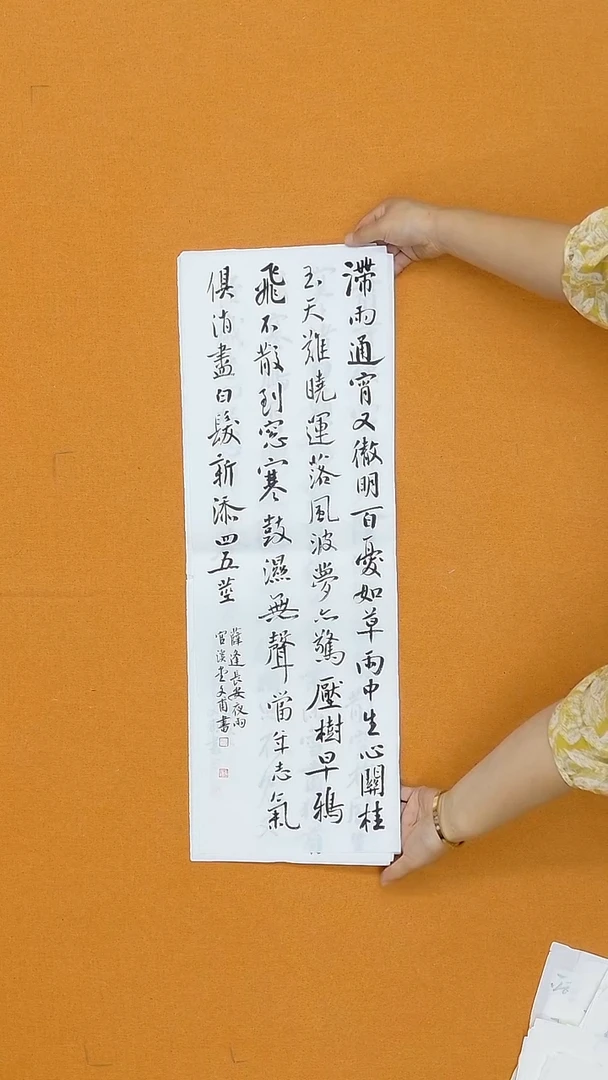 滯雨通宵又徹明百憂如草雨中生心關桂
玉天難曉運落風波夢亦驚壓樹早鴉
飛不散到窓寒鼓濕無聲當年志氣
俱消盡白髮新添四五莖
薛逢長安夜雨
溪堂文甫書